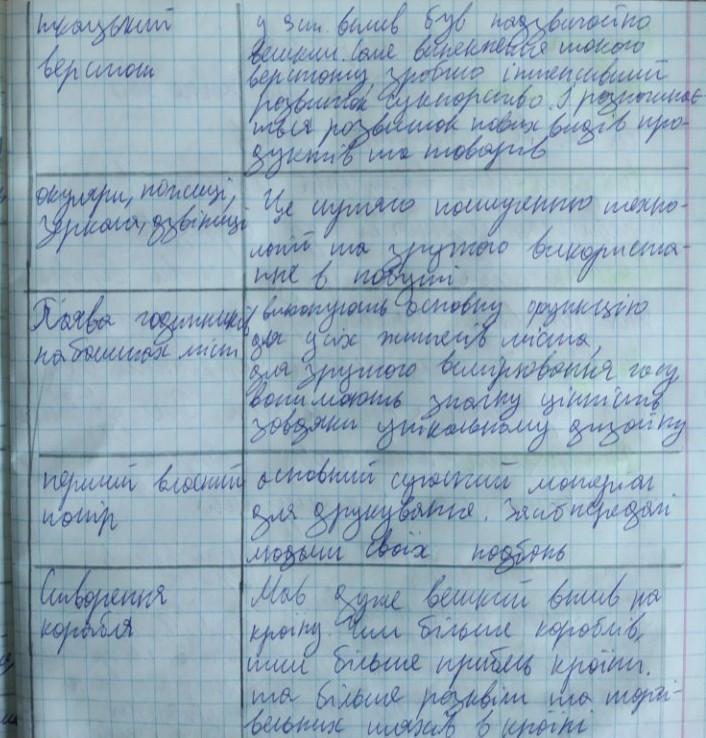 ткацький
верстат
у Зах. вплив був надзвичайно
великим. Саме винекнення такого
верстату, зробило інтенсивний
розвиток сукнарства. І розпочинає-
ться розвиток нових видів про-
дуктів та товарів
окуляри, ножиці,
Зеркала, дзвіниці
Це сутяго техно-
логій та зручного використа-
ння в побуті
Поява годинників
на баштах міст
виконують основну функцію
для усіх жителів міста,
для зручного вимірювання часу
вони мають значну цінність
завдяки унікальному дизайну
перший власний
папір
основний сучасний матеріал
для друкування.
людьми своїх
Створення
корабля
Мав дуже великий вплив на
країну. Чим більше кораблів,
тим більше прибель країни.
та більше розквіт та торгі-
вельних шляхів в країні